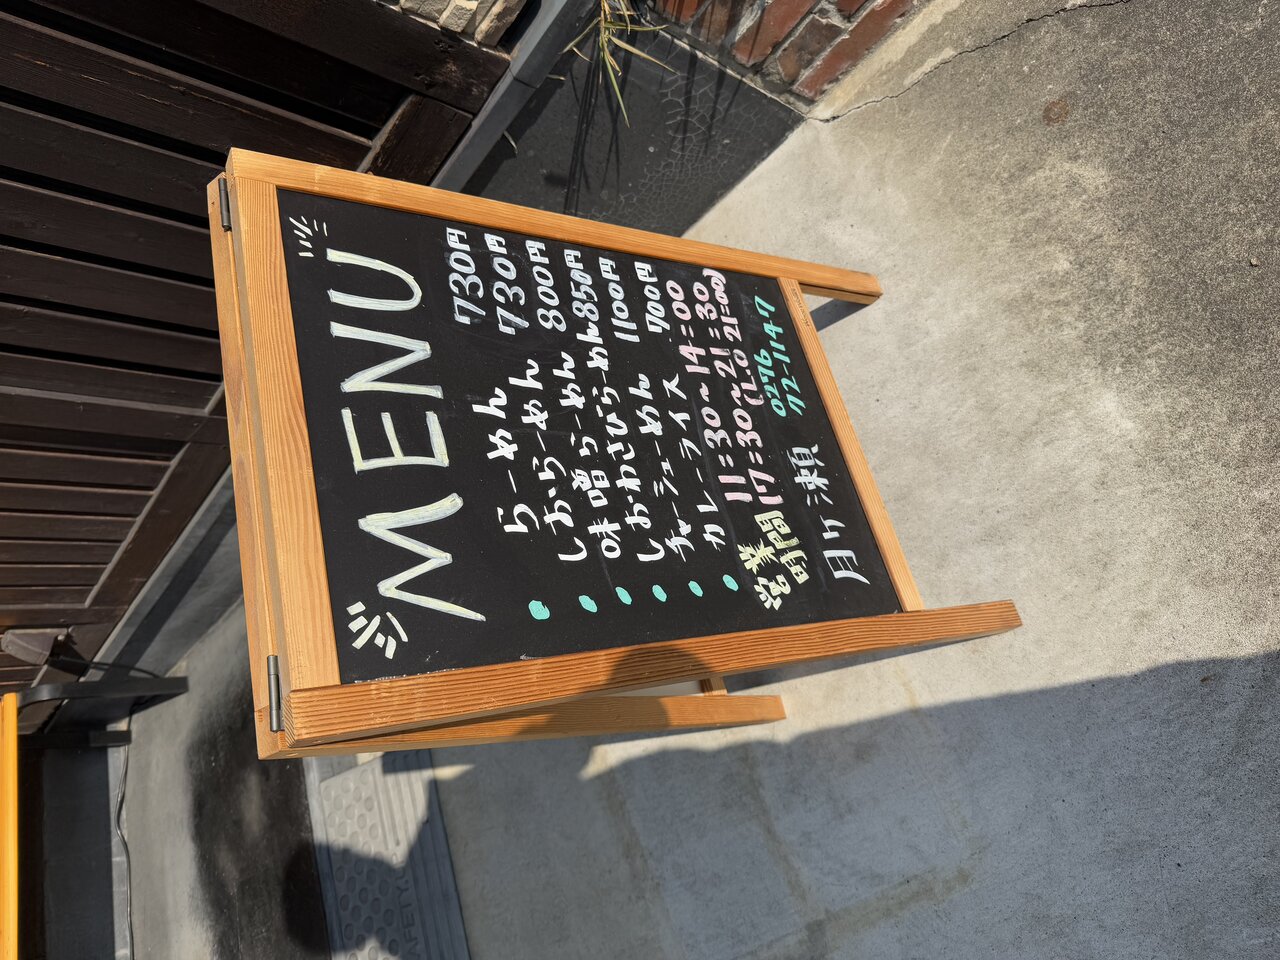 MENU
らーめん 730円
しおらーめん 730円
味噌らーめん 800円
しおわさびらーめん 850円
チャーシューめん 1100円
カレーライス 700円
営業時間 11:30~14:00
17:30~21:30
(L.O 21:00)
月ヶ瀬 0276
72-1147